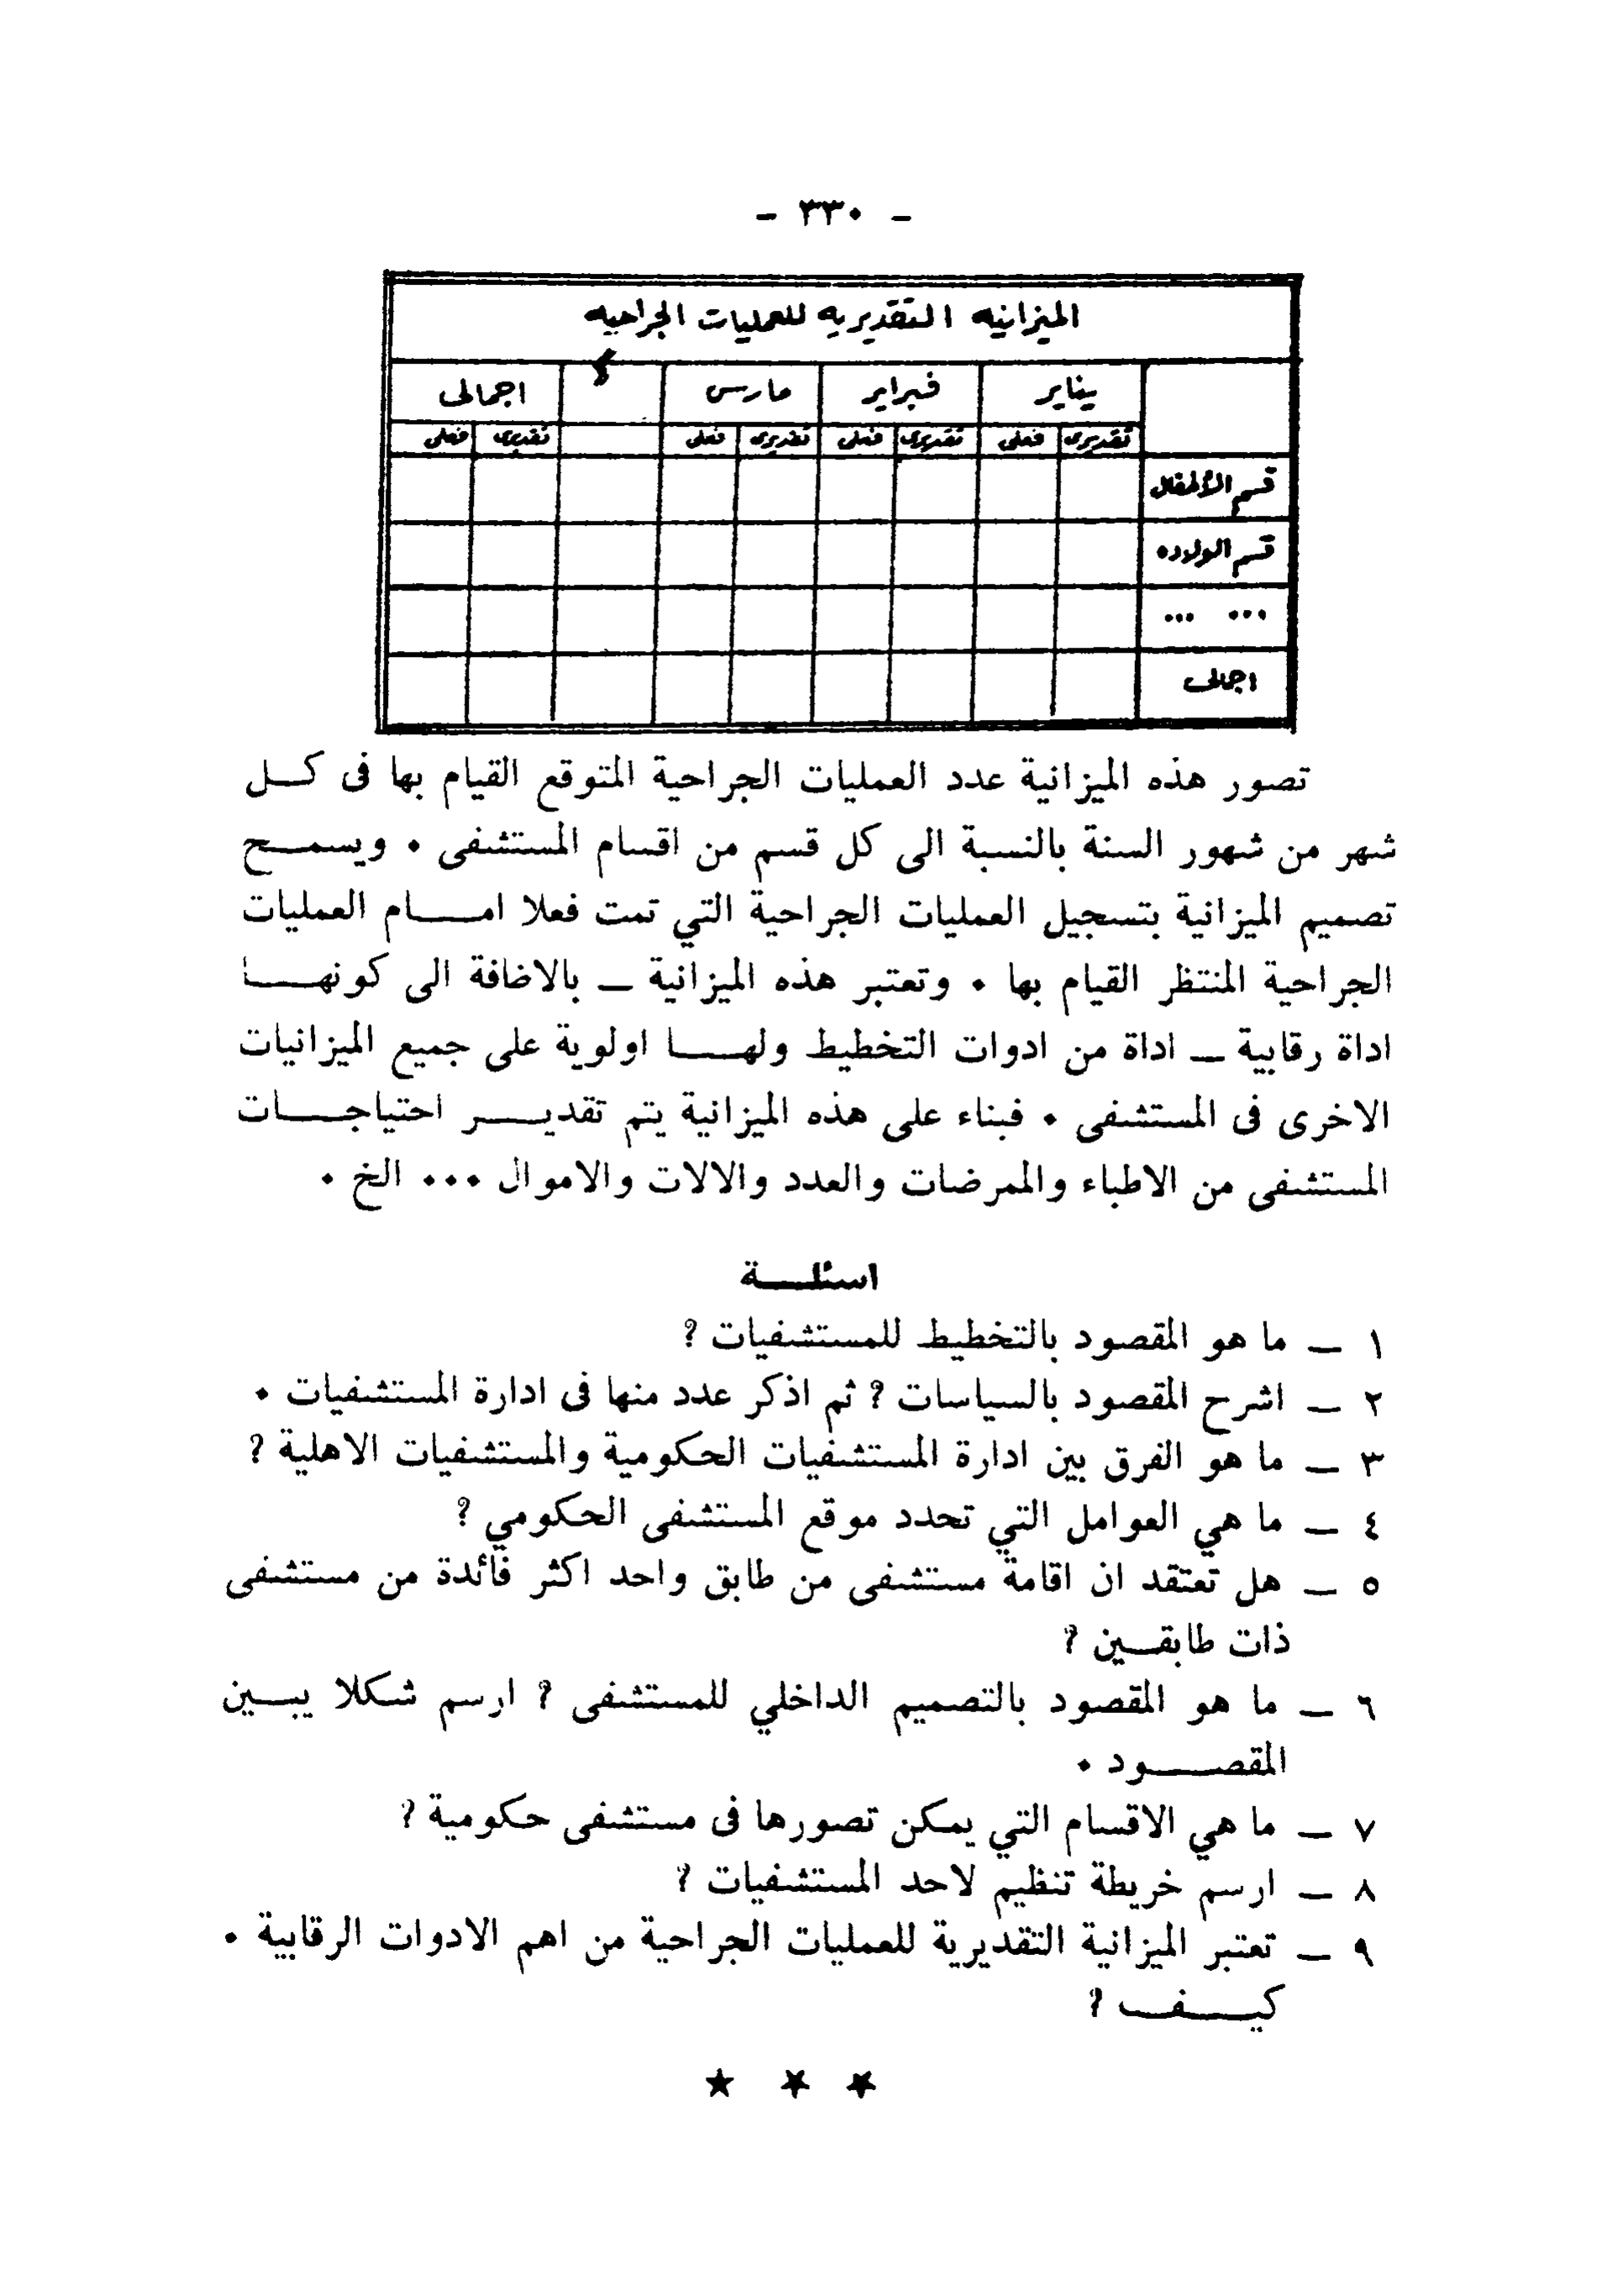 - ٣٣٠ -
الميزانيه التقديريه للعمليات الجراحيه
يناير فبراير مارس اجمالى
تقديرى فعلى تقديرى فعلى تقديرى فعلى تقديرى فعلى
قسم الأطفال
قسم الولاده
... ...
اجمالى
تصور هذه الميزانية عدد العمليات الجراحية المتوقع القيام بها فى كــل
شهر من شهور السنة بالنسبة الى كل قسم من اقسام المستشفى . ويسمــح
تصميم الميزانية بتسجيل العمليات الجراحية التي تمت فعلا امــــام العمليات
الجراحية المنتظر القيام بها . وتعتبر هذه الميزانية ــ بالاضافة الى كونهــا
اداة رقابية ــ اداة من ادوات التخطيط ولهــا اولوية على جميع الميزانيات
الاخرى فى المستشفى . فبناء على هذه الميزانية يتم تقديــر احتياجــات
المستشفى من الاطباء والممرضات والعدد والالات والاموال ... الخ .
اسئلــة
١ ــ ما هو المقصود بالتخطيط للمستشفيات ؟
٢ ــ اشرح المقصود بالسياسات ؟ ثم اذكر عدد منها فى ادارة المستشفيات .
٣ ــ ما هو الفرق بين ادارة المستشفيات الحكومية والمستشفيات الاهلية ؟
٤ ــ ما هي العوامل التي تحدد موقع المستشفى الحكومي ؟
٥ ــ هل تعتقد ان اقامة مستشفى من طابق واحد اكثر فائدة من مستشفى
ذات طابقــين ؟
٦ ــ ما هو المقصود بالتصميم الداخلي للمستشفى ؟ ارسم شكلا يبــين
المقصــود .
٧ ــ ما هي الاقسام التي يمكن تصورها فى مستشفى حكومية ؟
٨ ــ ارسم خريطة تنظيم لاحد المستشفيات ؟
٩ ــ تعتبر الميزانية التقديرية للعمليات الجراحية من اهم الادوات الرقابية .
كيــف ؟
★ ★ ★